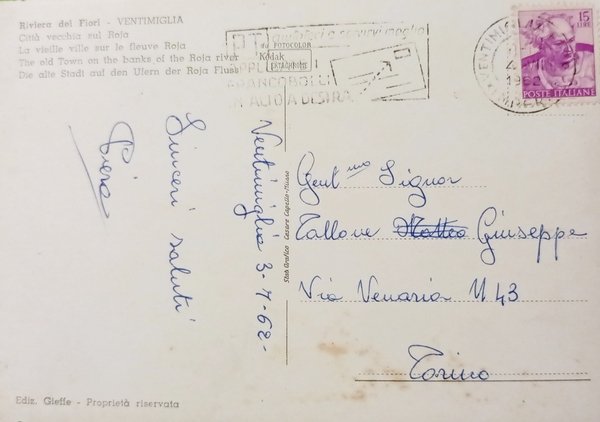 Riviera dei Fiori - VENTIMIGLIA
Città vecchia sul Roja
La vieille ville sur le fleuve Roja
The old Town on the banks of the Roja river
Die alte Stadt auf den Ufern der Roja Fluss
da FOTOCOLOR
Kodak
EKTACHROME
FRANCOBOLLI
IN ALTO A DESTRA
VENTIMIGLIA
1962
15
LIRE
POSTE ITALIANE
Ventimiglia 3-7-62-
Sinceri saluti
Piera
Stab. Grafico Cesare Capello - Milano
Gent.mo Signor
Tallone Matteo Giuseppe
Via Venaria N 43
Torino
Ediz. Gieffe - Proprietà riservata